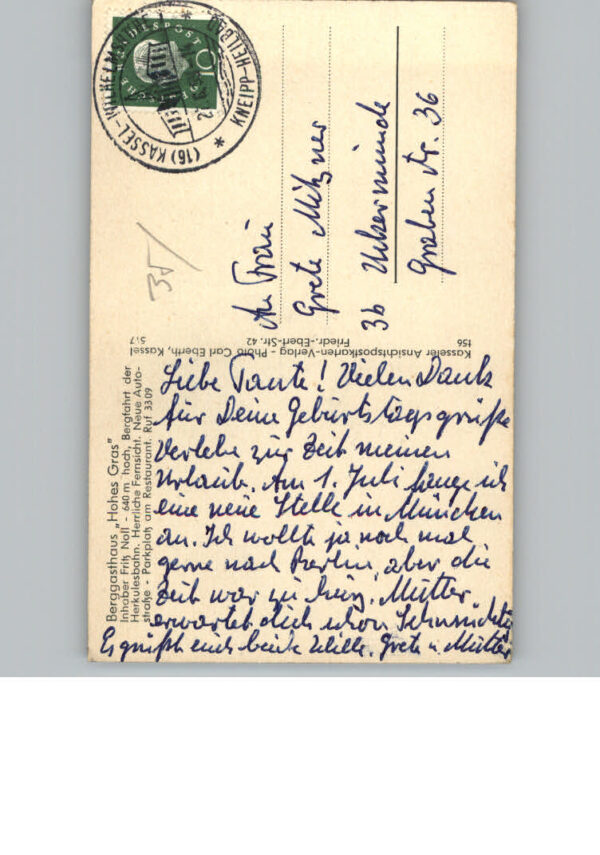 Berggasthaus „Hohes Gras"
Inhaber Fritz Noll - 640 m hoch, Bergfahrt der
Herkulesbahn. Herrliche Fernsicht. Neue Auto-
straße - Parkplatz am Restaurant. Ruf 3309
Liebe Tante! Vielen Dank
für Deine Geburtstagsgrüße
Verlebe zur Zeit meinen
Urlaub. Am 1. Juli fange ich
eine neue Stelle in München
an. Ich wollte ja noch mal
gerne nach Berlin, aber die
Zeit war zu kurz. Mutter
erwartet dich schon sehnsüchtig
Es grüßt euch beide Willi, Grete u. Mutter
Kasseler Ansichtspostkarten-Verlag - Photo Carl Eberth, Kassel
156 Friedr.-Ebert-Str. 42 5.7
An Frau
Grete Mitzner
3b Uckermünde
Graben Str. 36
35/
DEUTSCHE BUNDESPOST
10
(16) KASSEL-WILHELMSHÖHE 1
KNEIPP-HEILBAD